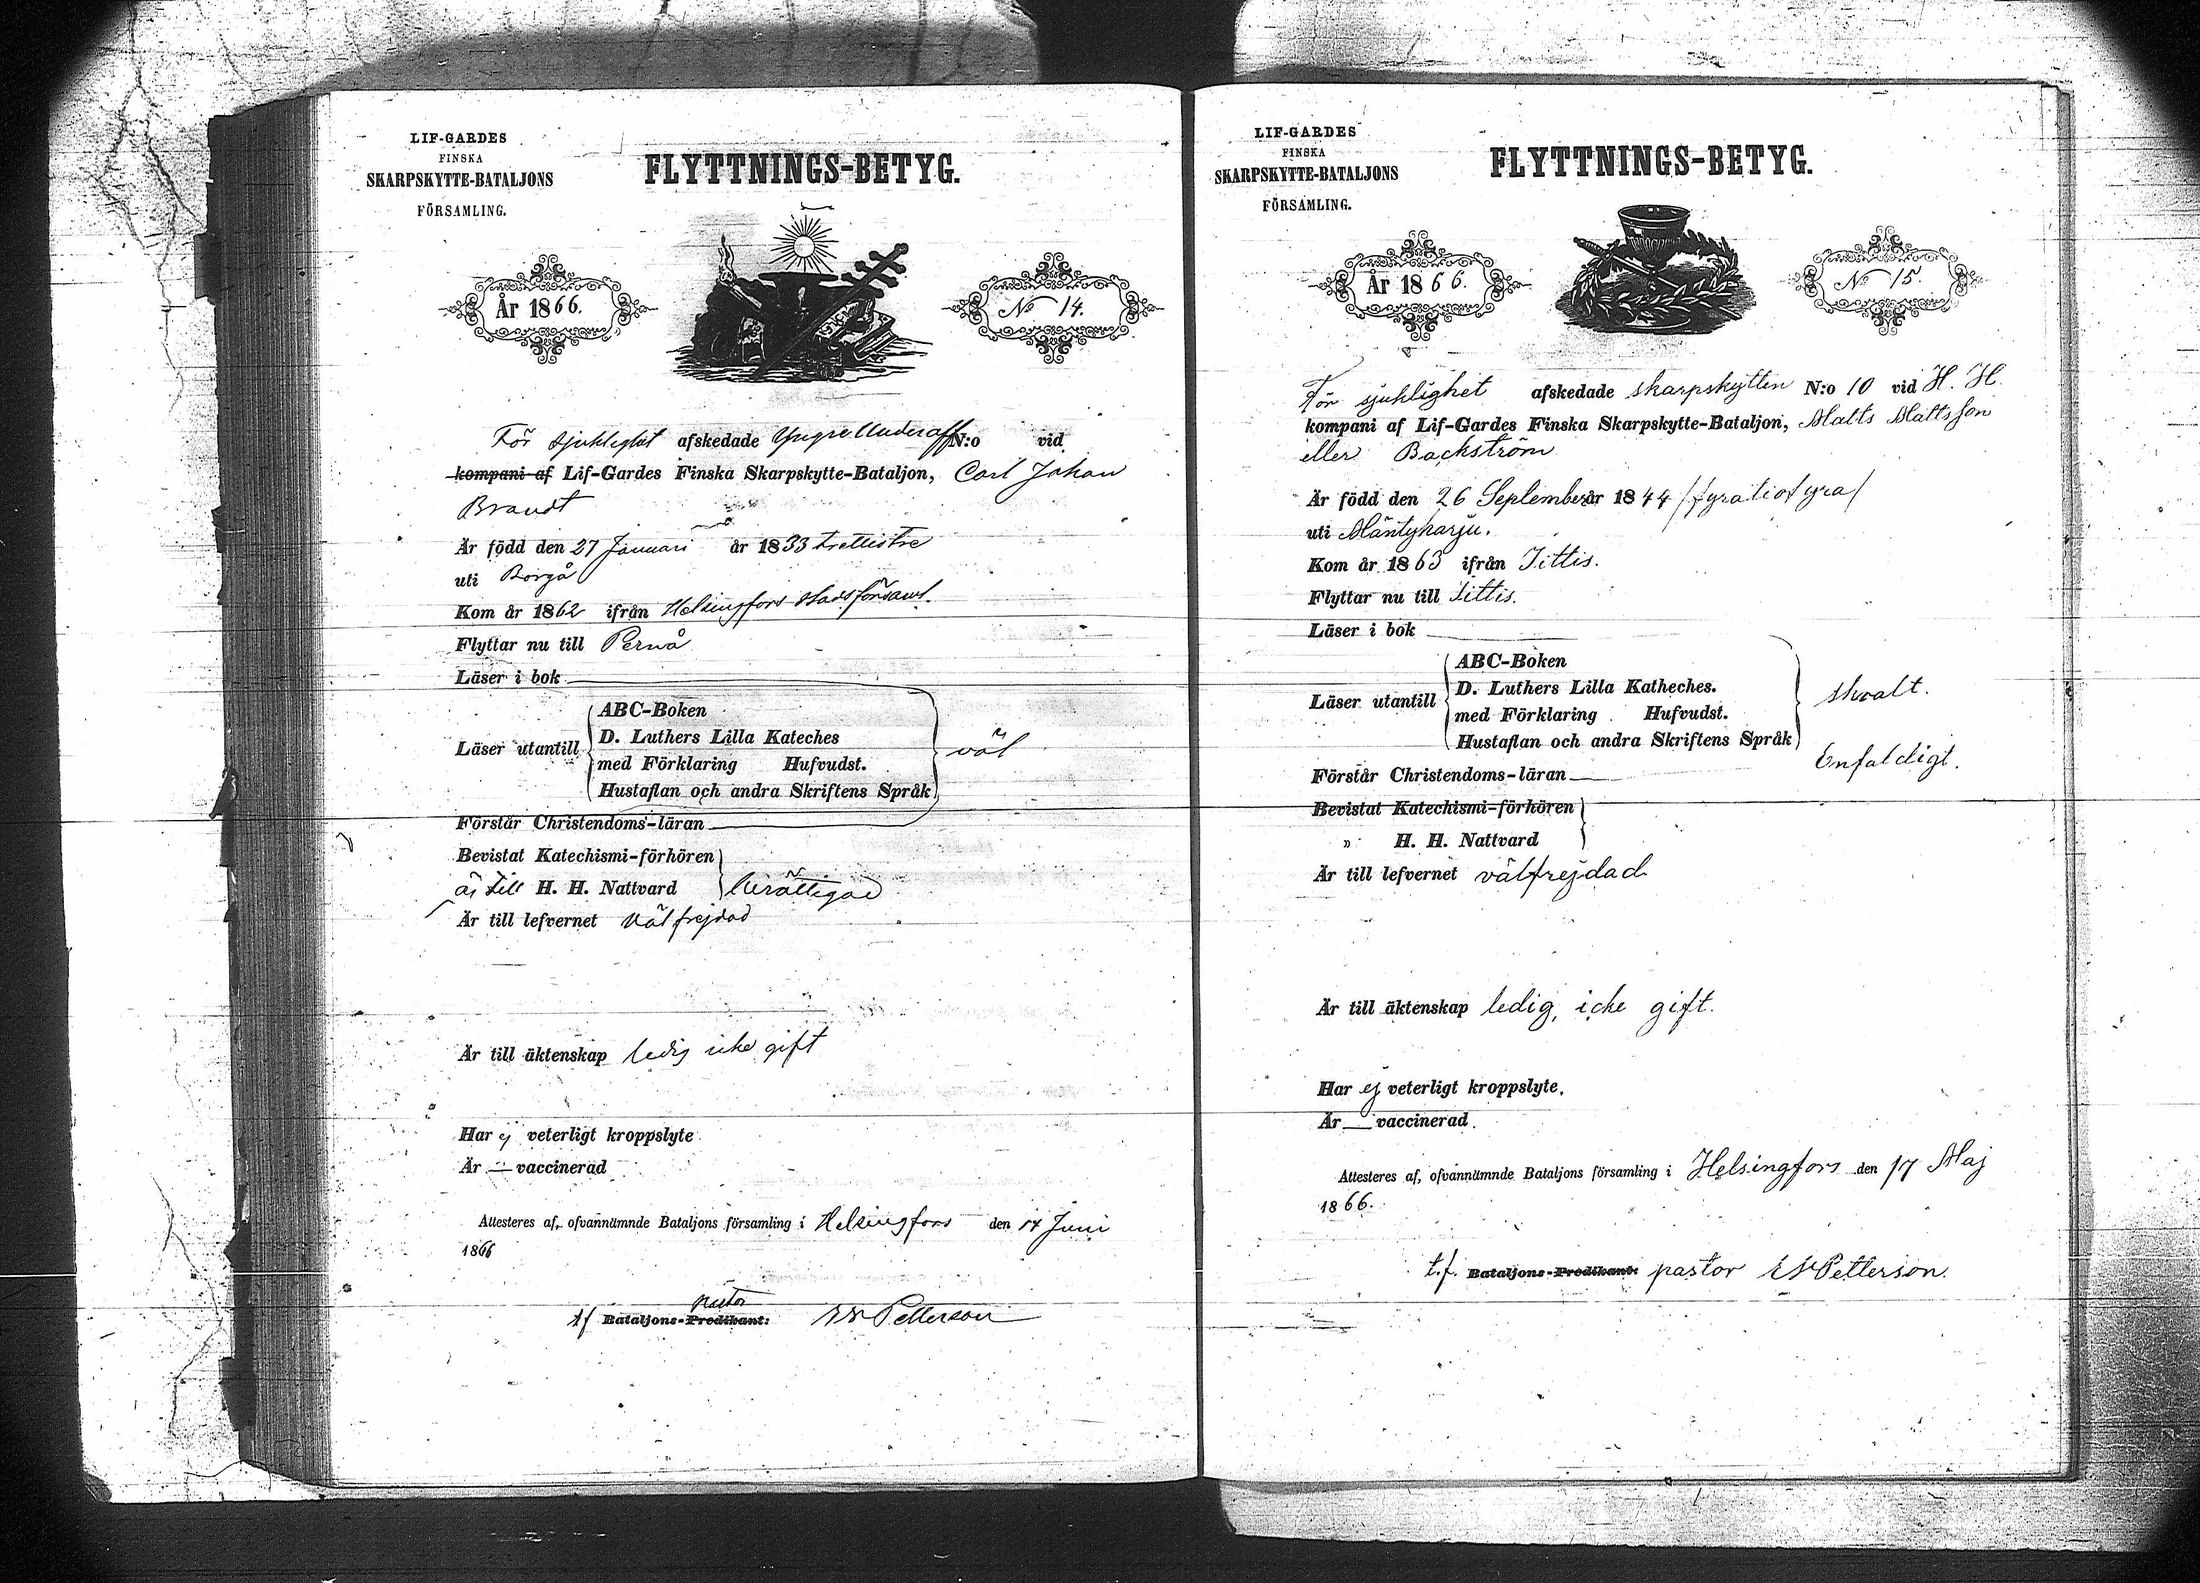 LIF-GARDES
FINSKA
SKARPSKYTTE-BATALJONS
FÖRSAMLING.
FLYTTNINGS-BETYG.
År 1866.
No 14.
För sjuklighet afskedade Yngre Underoff N:o vid
kompani af Lif-Gardes Finska Skarpskytte-Bataljon, Carl Johan
Brandt
Är född den 27 Januari år 1833 trettiotre
uti Borgå
Kom år 1862 ifrån Helsingfors stads församl.
Flyttar nu till Pernå
Läser i bok
Läser utantill
ABC-Boken
D. Luthers Lilla Kateches
med Förklaring Hufvudst.
Hustaflan och andra Skriftens Språk
väl
Förstår Christendoms-läran
Bevistat Katechismi-förhören
är till H. H. Nattvard berättigad
Är till lefvernet välfrejdad
Är till äktenskap ledig icke gift
Har ej veterligt kroppslyte
Är — vaccinerad
Attesteres af, ofvannämnde Bataljons församling i Helsingfors den 14 Juni
1866
pastor
tf Bataljons-Predikant: Petterson
LIF-GARDES
FINSKA
SKARPSKYTTE-BATALJONS
FÖRSAMLING.
FLYTTNINGS-BETYG.
År 1866.
No 15.
För sjuklighet afskedade skarpskytten N:o 10 vid H. H.
kompani af Lif-Gardes Finska Skarpskytte-Bataljon, Matts Mattsson
eller Backström
Är född den 26 September år 1844 /fyratiofyra/
uti Mäntyharju.
Kom år 1863 ifrån Iittis.
Flyttar nu till Iittis.
Läser i bok
Läser utantill
ABC-Boken
D. Luthers Lilla Katheches.
med Förklaring Hufvudst.
Hustaflan och andra Skriftens Språk
svalt.
Förstår Christendoms-läran Enfaldigt.
Bevistat Katechismi-förhören
" H. H. Nattvard
Är till lefvernet välfrejdad
Är till äktenskap ledig, icke gift.
Har ej veterligt kroppslyte.
Är — vaccinerad.
Attesteres af, ofvannämnde Bataljons församling i Helsingfors den 17 Maj
1866.
t.f. Bataljons-Predikant: pastor Petterson.